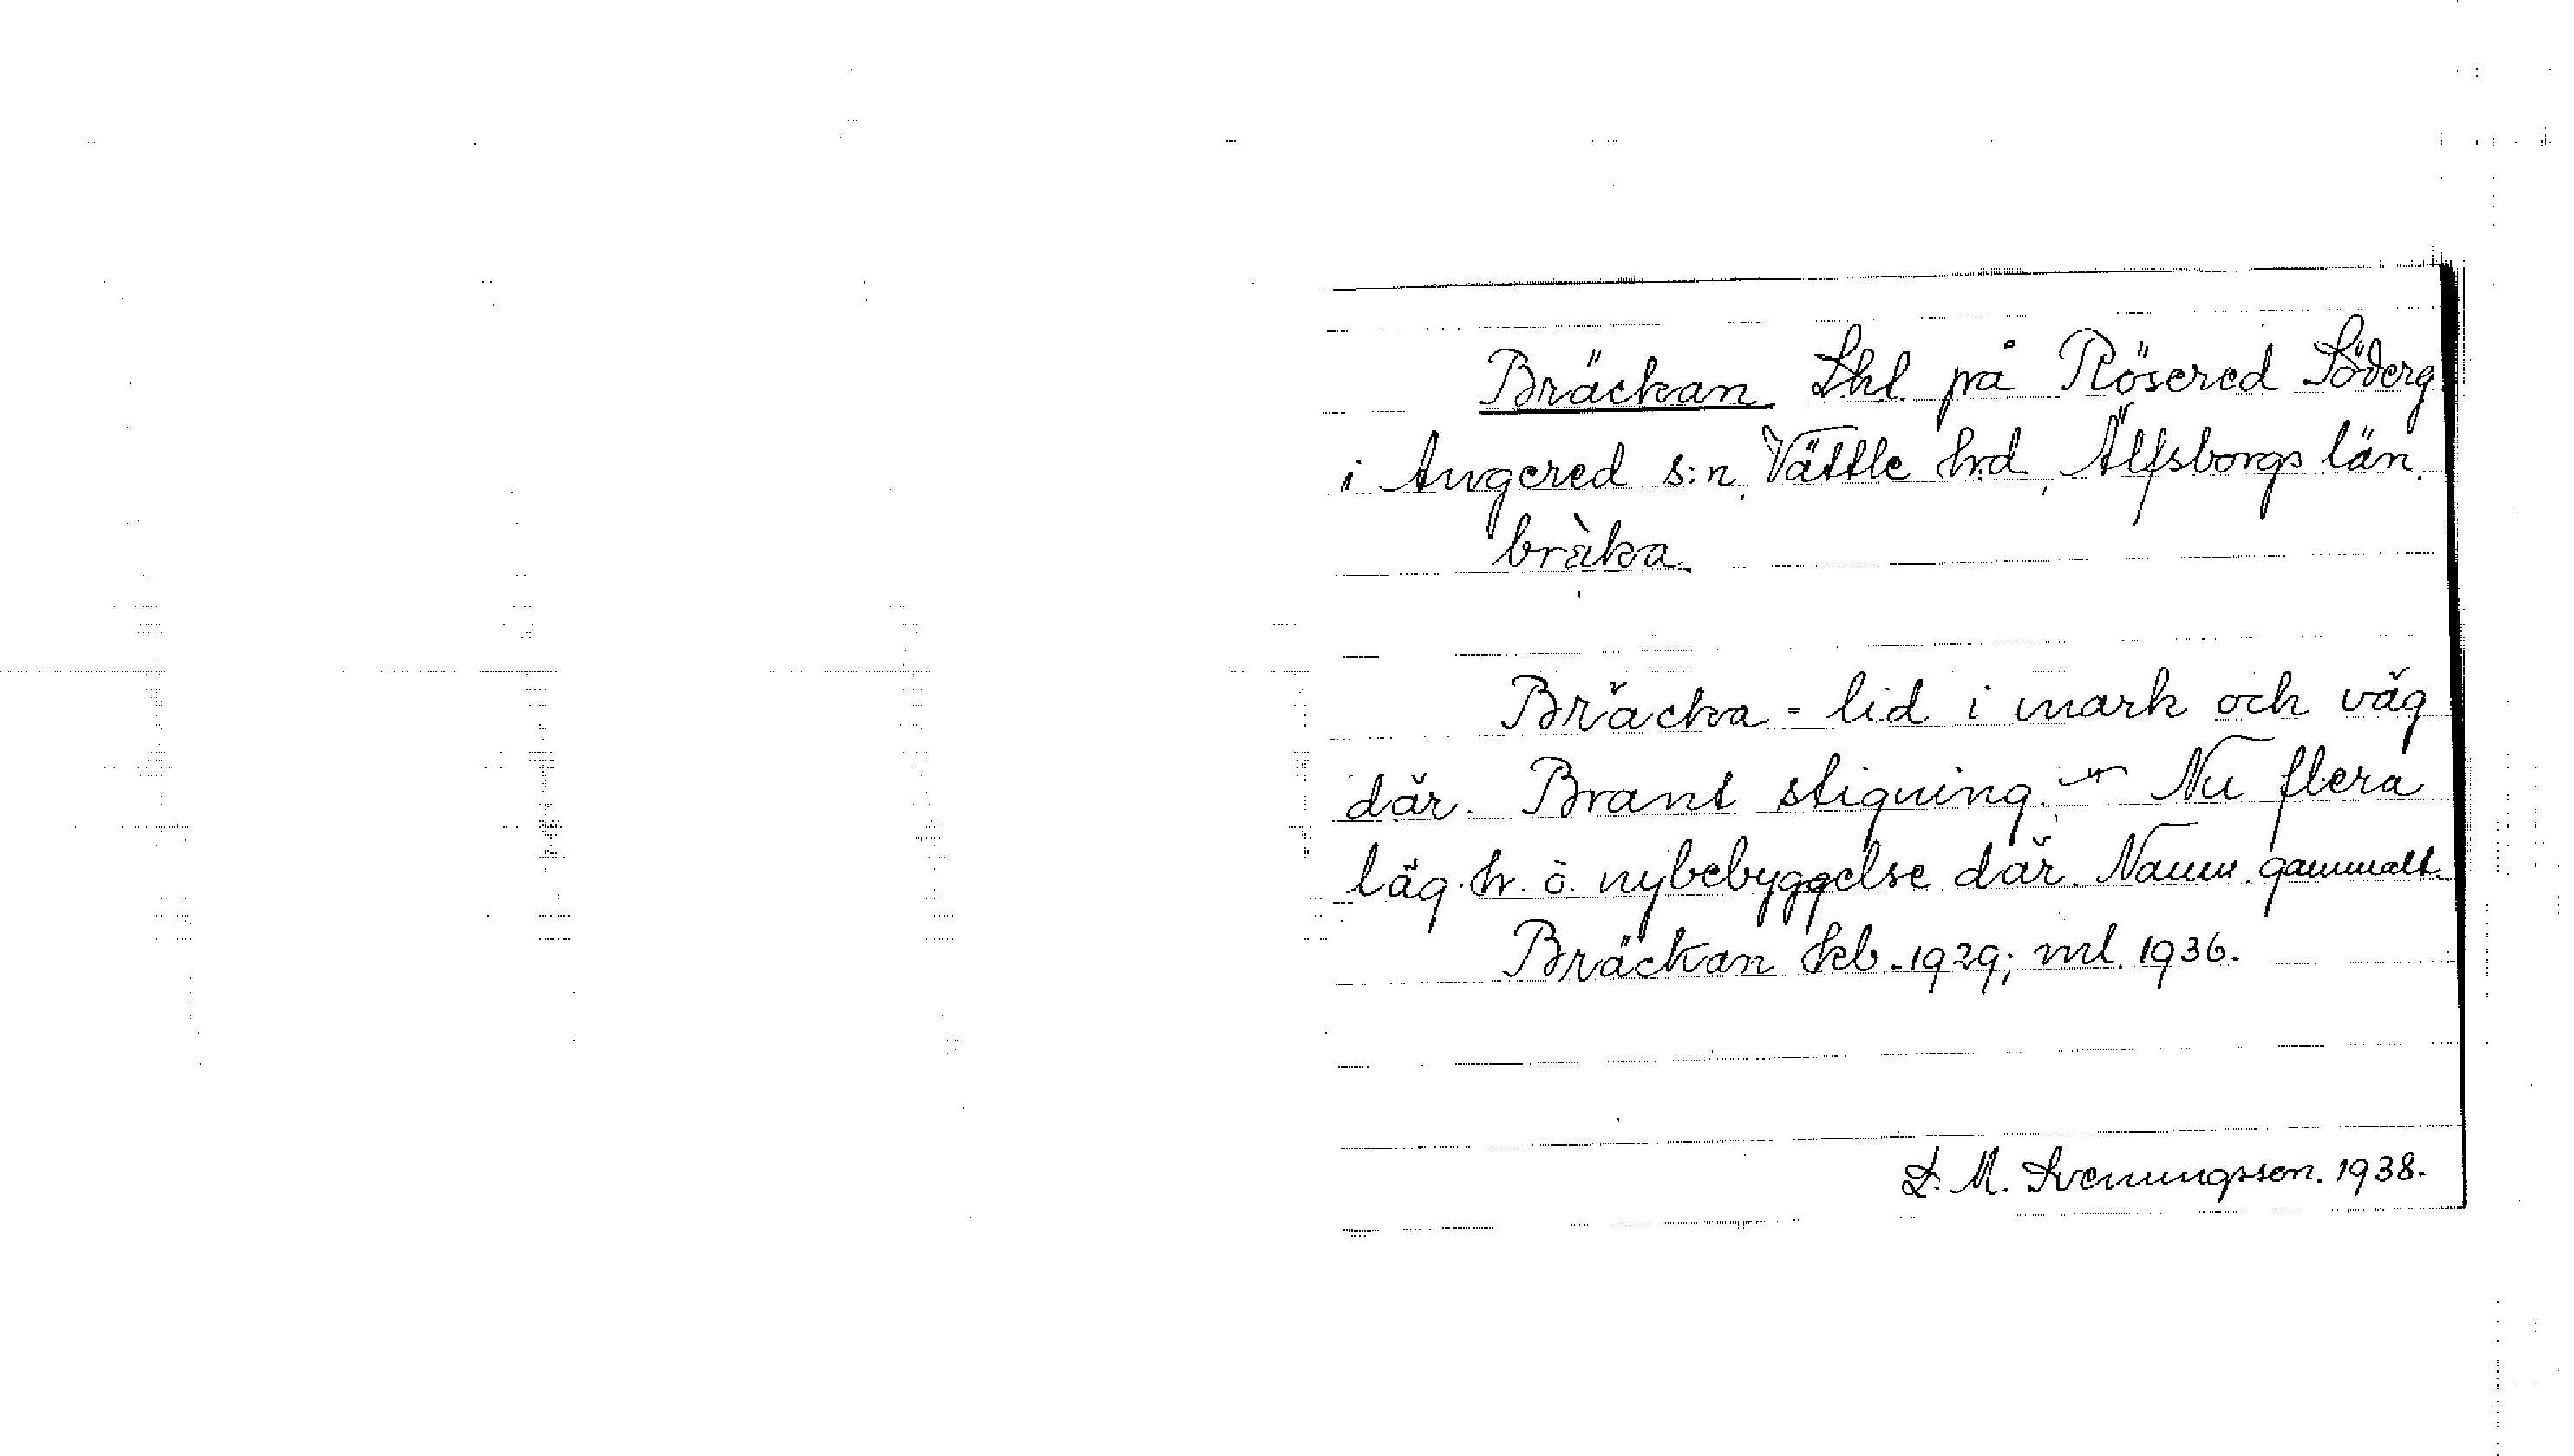 Bräckan Lhl på Rösered Söderg
i Angered s:n, Vättle hd, Älfsborgs län.
bràka.
Bräcka - lid i mark och väg
där. Brant stigning. - Nu flera
läg. h. o. nybebyggelse där. Namn. gammalt.
Bräckan kb. 1929; ml. 1936.
S. M. Svenungsson. 1938.